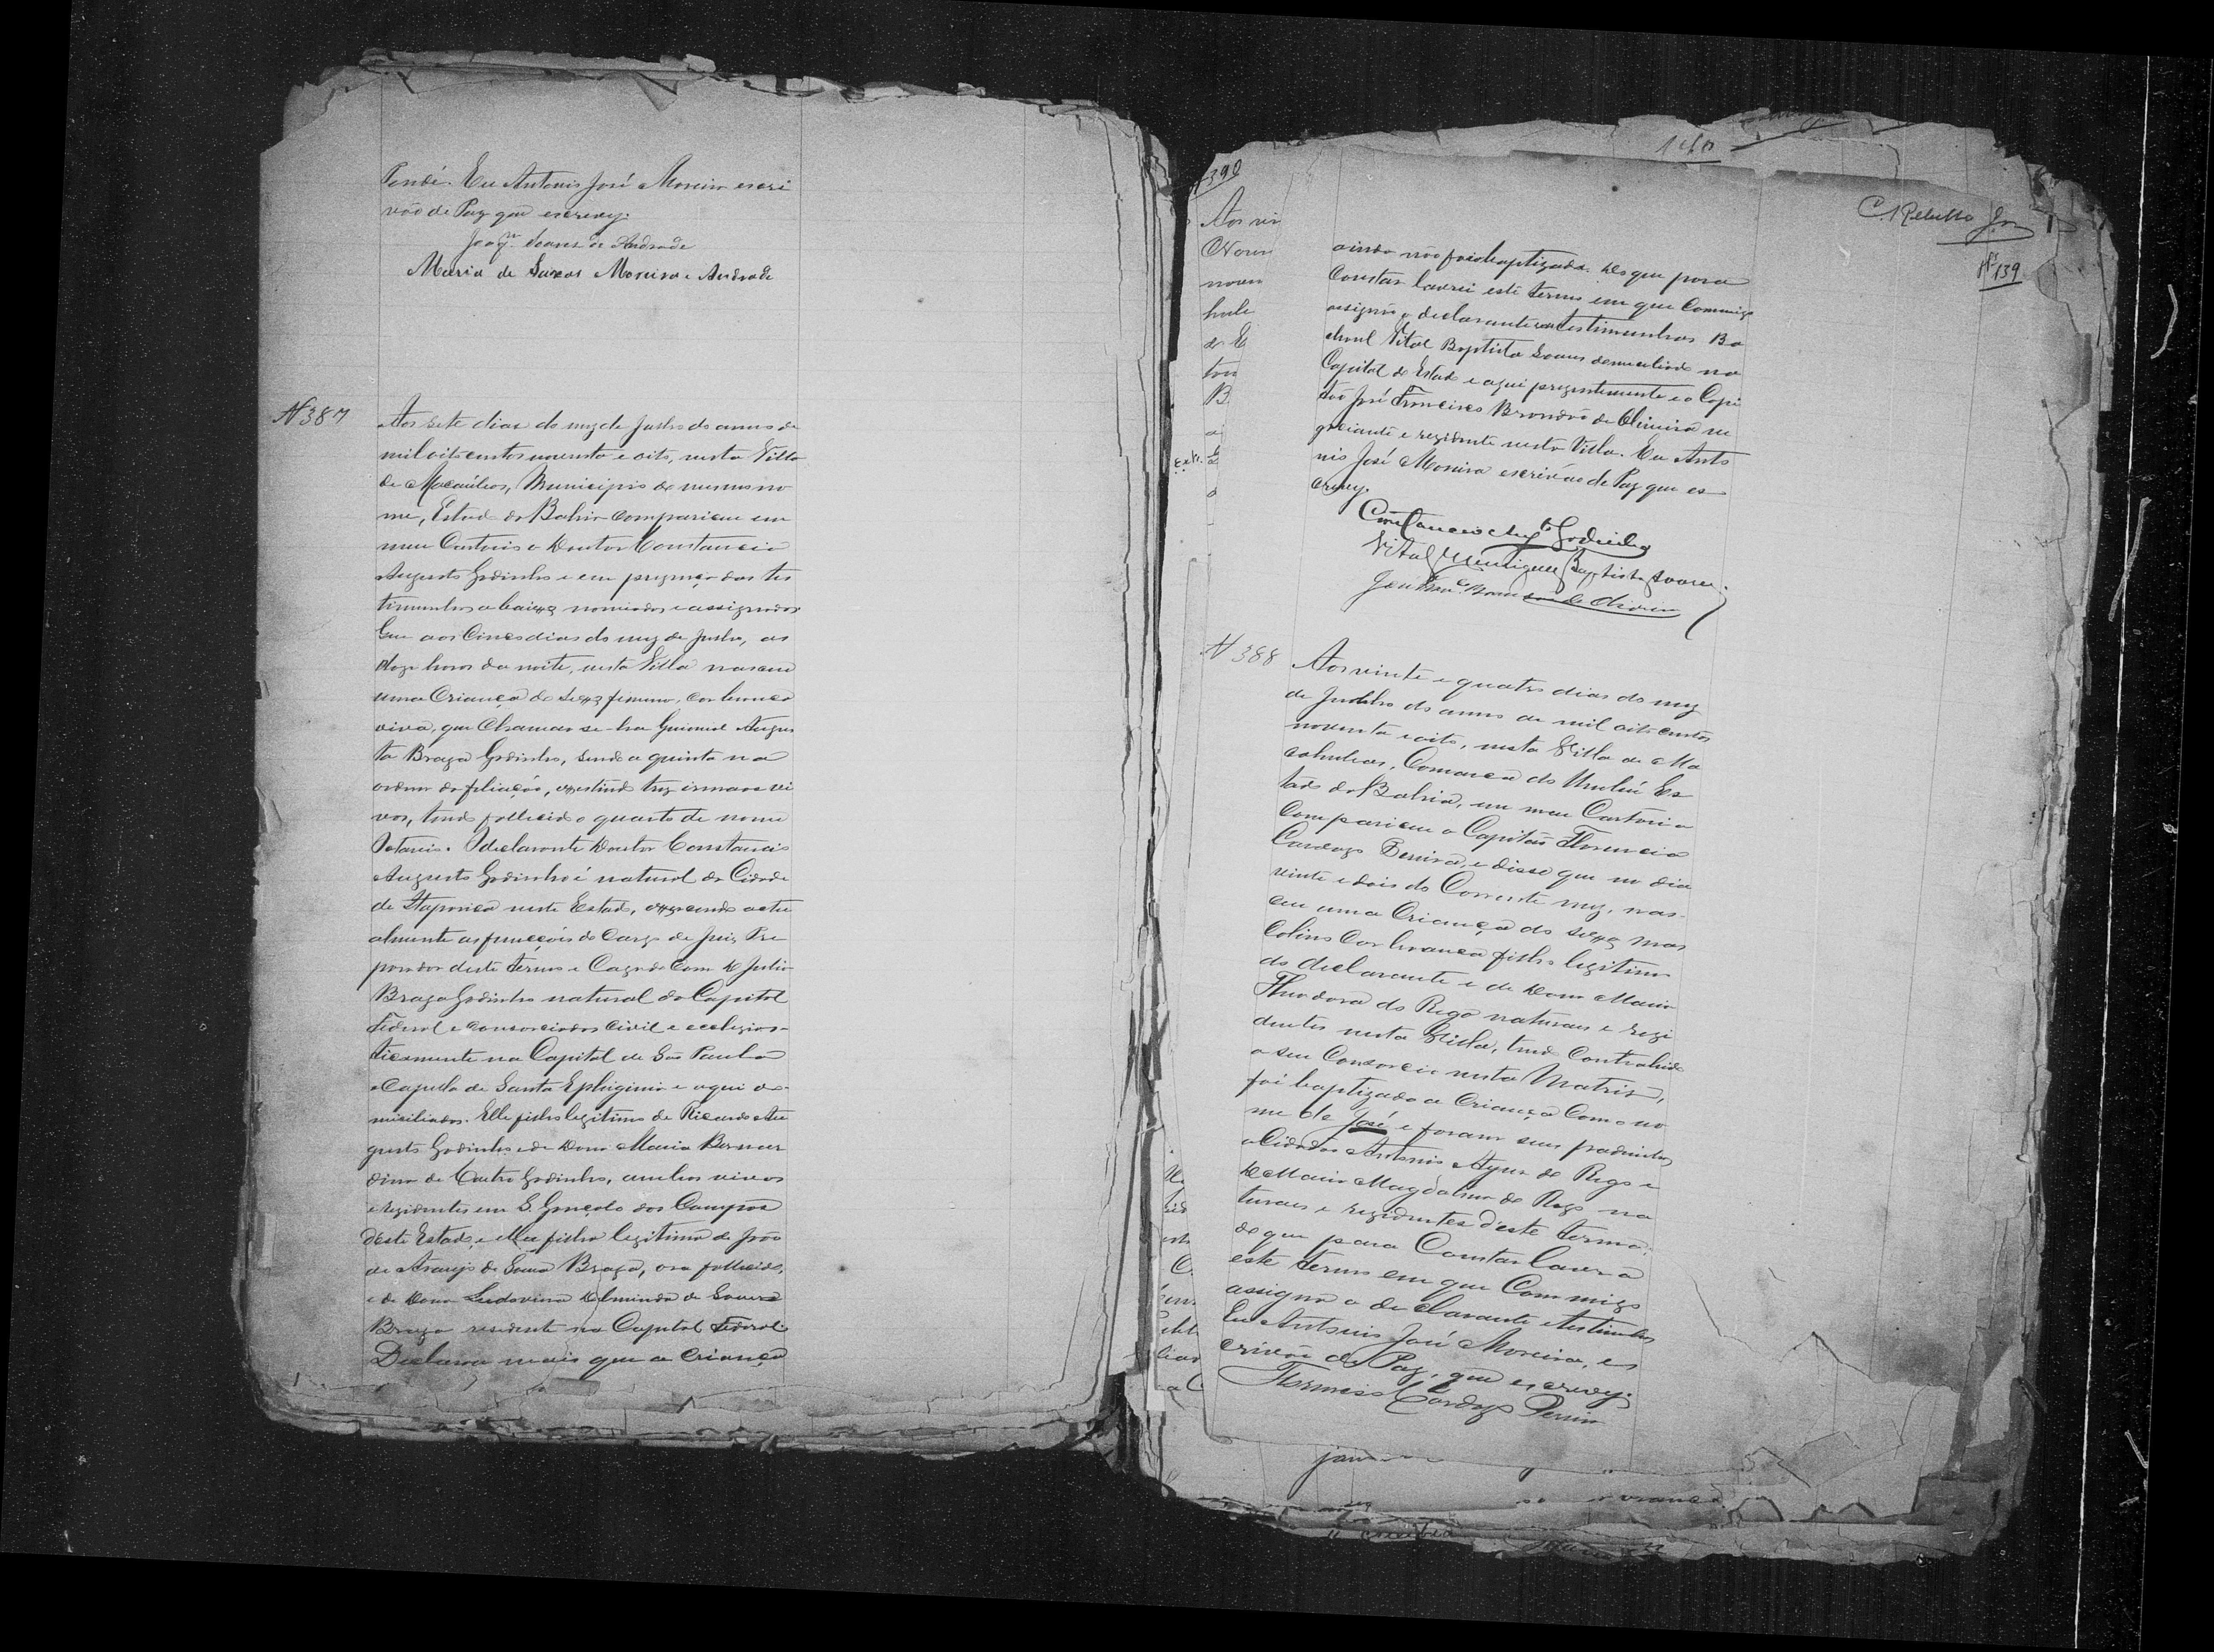 Eu Antonio José Moreira escri
vão de Paz que escrevy.
Joaqm Soares de Andrade
Maria de Moreira e Andrade
N 387
Aos sete dias do mez de Julho do anno de
mil oitocentos noventa e oito, nesta Villa
de Macaúbas, Municipio do mesmo no
me, Estado da Bahia compareceu em
meu Cartorio o Doutor Constancio
Augusto Godinho e em prezença das tes
timunhas abaixo nomiadas e assignadas
Que aos Cinco dias do mez de Julho, as
doze horas da noite, nesta Villa nasceu
uma Criança do sexo feminino, cor branca
viva, que Chamar se-ha Guiomar Augus
ta Braga Godinho, sendo a quinta na
ordem da filiação, existindo trez irmãos vi
vos, tendo fallecido o quarto de nome
O declarante Doutor Constancio
Augusto Godinho é natural da Cidade
de Itaparica neste Estado, exercendo actu
almente as funcções do Cargo de Juiz Pre
parador deste termo e Cazado com D Julia
Braga Godinho natural da Capital
Federal e consorciados Civil e eccleziás-
ticamente na Capital de São Paulo
Capella de Santa Ephigenia e aqui do-
miciliados. Elle filho legitimo de Ricardo Au
gusto Godinho e de Dona Maria Bernar
dina de Castro Godinho, ambos vivos
e rezidentes em S. Gonçalo dos Campos
deste Estado, e ella filha legitima de João
de Araujo de Souza Braga, ora fallecido,
e de Dona Ludovina de Souza
Braga residente na Capital Federal.
Declarou mais que a Criança
140
C. Rebello Jor
N 139
390
ainda não foi baptizada. Do que para
Constar lavrei este termo em que Commigo
assigna o declarante e as testimunhas Ba
charel Vital Baptista Soares domiciliado na
Capital do Estado e aqui prezentemente e o Capi
tão José Francisco Brandão de Oliveira ne
gociante e rezidente nesta Villa. Eu Anto
nio José Moreira escrivão de Paz que es
crevy.
Constancio Augto Godinho
Vital Henriques Baptista Soares.
José Franco Brandão de Oliveira
N 388
Aos vinte e quatro dias do mez
de Julho do anno de mil oito centos
noventa e oito, nesta Villa de Ma
cahubas, Comarca do Urubú Es
tado da Bahia, em meu Cartorio
Compareceu o Capitão Florencio
Cardozo Pereira, e disse que no dia
vinte e dois do Corrente mez, nas-
ceu uma Criança do sexo mas
Colino Cor branca filho legitimo
do declarante e de Dona Maria
Theodora do Rego naturaes e rezi
dentes nesta Villa, tendo Contrahido
o seu Consorcio nesta Matriz,
foi baptizada a Criança Com o no
me de José e foram seus padrinhos
o Cidadão Antonio do Rego e
D Maria Magdalena do Rego na
turaes e rezidentes d'este termo;
do que para Constar lavro
este termo em que Commigo
assigna o declarante e testimunhas
Eu Antonio José Moreira, es
crivão de Paz, que escrevy.
Cardozo Pereira